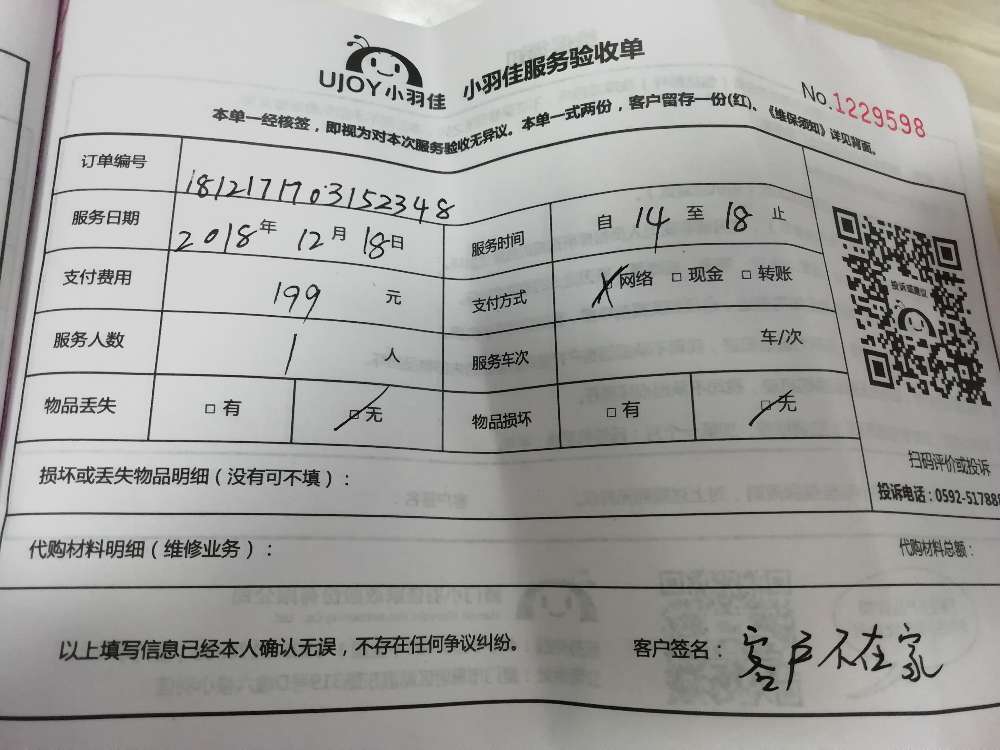 UJOY小羽佳 小羽佳服务验收单
No.1229598
本单一经核签，即视为对本次服务验收无异议。本单一式两份，客户留存一份(红)、《维保须知》详见背面。
订单编号 1812171703152348
服务日期 2018年 12月 18日 服务时间 自 14 至 18 止
支付费用 199 元 支付方式 □网络 □现金 □转账
投诉或建议
服务人数 1 人 服务车次 车/次
物品丢失 □有 □无 物品损坏 □有 □无
损坏或丢失物品明细（没有可不填）：
扫码评价或投诉
投诉电话：0592-51788
代购材料明细（维修业务）： 代购材料总额：
以上填写信息已经本人确认无误，不存在任何争议纠纷。 客户签名：客户不在家